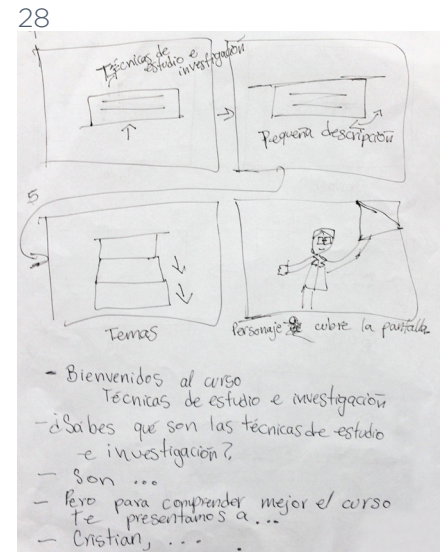 28
Técnicas de
estudio e
investigación
Pequeña descripción
5
Temas
Personaje cubre la pantalla
- Bienvenidos al curso
Técnicas de estudio e investigación
- ¿Sabes qué son las técnicas de estudio
e investigación?
- Son ...
- Pero para comprender mejor el curso
te presentamos a ...
- Cristian, ...